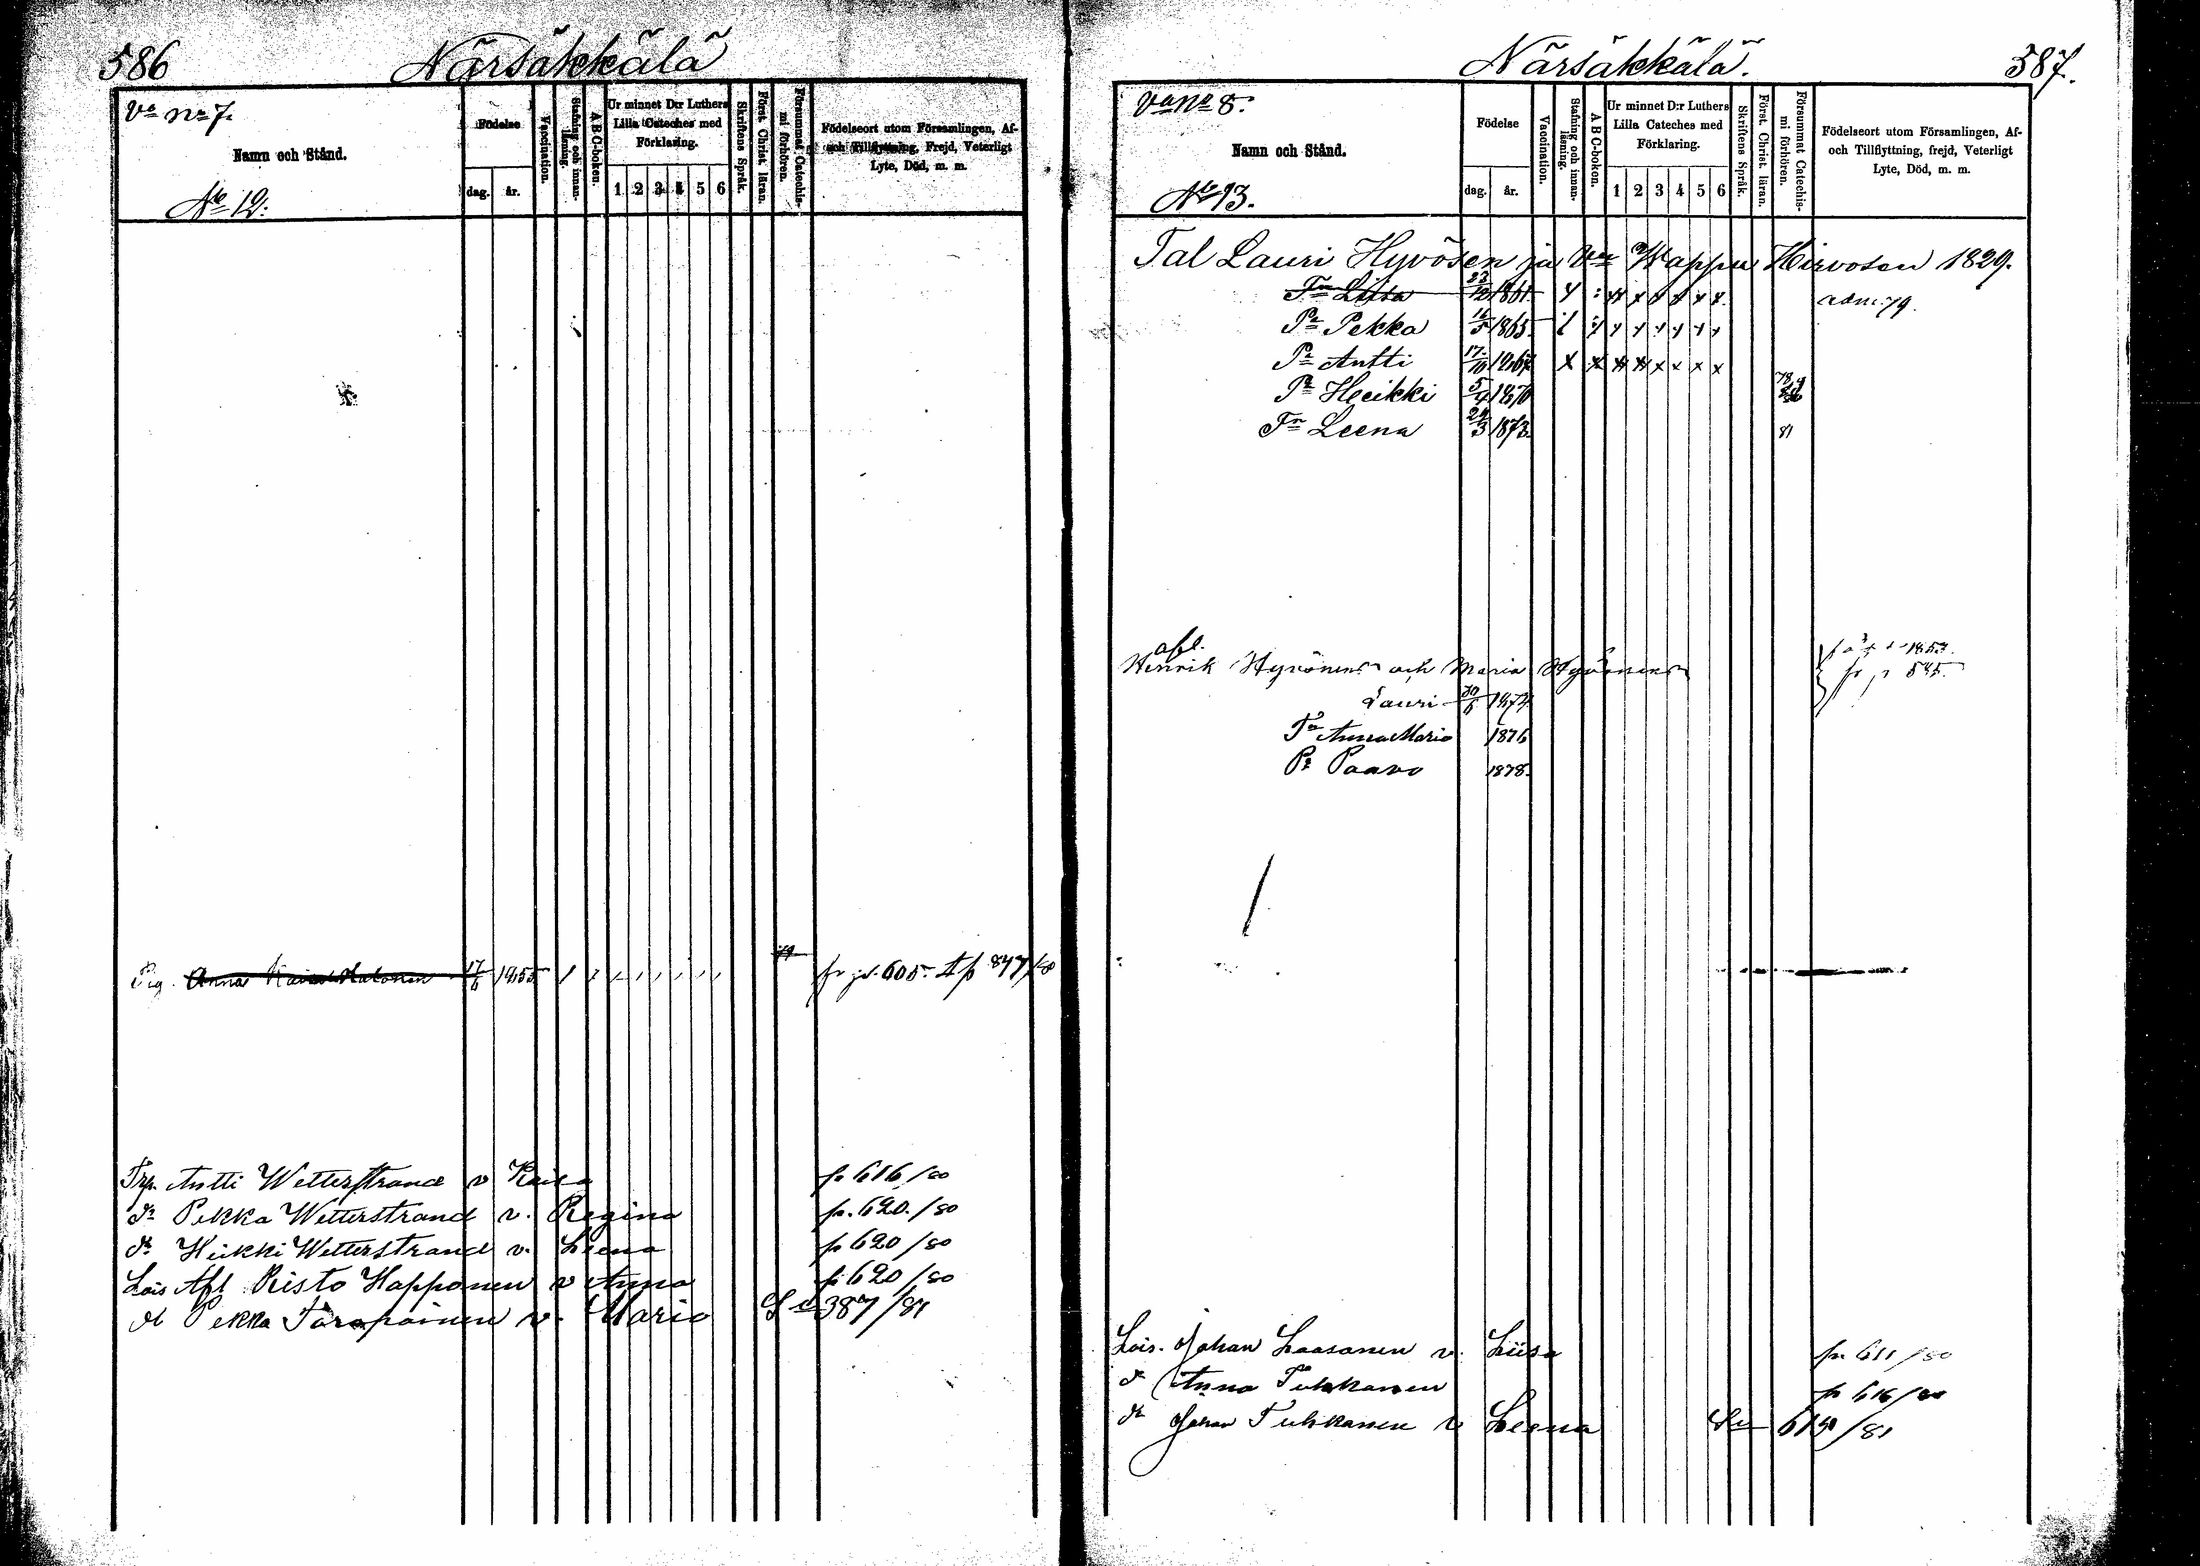 586
Närsäkkälä
Va No 7.
Namn och Stånd.
No 12.
Födelse
dag.
år.
Vaccination.
Stafning och innan-läsning.
A B C-boken.
Ur minnet D:r Luthers
Lilla Cateches med
Förklaring.
1 2 3 4 5 6
Skriftens Språk.
Först. Christ. läran.
Försummat Catechis-
mi förhören.
Födelseort utom Församlingen, Af-
och Tillflyttning, Frejd, Veterligt
Lyte, Död, m. m.
Pig. Anna 17/6 1855 79 fr p. 605.
Trp. Antti Wetterstrand v Kaisa fr 616/80
dr Pekka Wetterstrand v. Regina fr. 620./80
dr Heikki Wetterstrand v. Leena fr 620/80
Lois Afl Risto Happonen v Anna fr 620/80
dr Pekka v. Maria 387/81
Närsäkkälä.
587.
Va No 8.
Namn och Stånd.
No 13.
Födelse
dag.
år.
Vaccination.
Stafning och innan-läsning.
A B C-boken.
Ur minnet D:r Luthers
Lilla Cateches med
Förklaring.
1 2 3 4 5 6
Skriftens Språk.
Först. Christ. läran.
Försummat Catechis-
mi förhören.
Födelseort utom Församlingen, Af-
och Tillflyttning, frejd, Veterligt
Lyte, Död, m. m.
Tal Lauri Hyvösen ja Wappu Hirvosen 1829.
Tr Liisa 23/12 1861 adm. 79.
Pr Pekka 16/5 1865
Pr Antti 17/10 1867
Pr Heikki 5/4 1870 78
Tr Leena 24/3 1873 81
afl.
Henrik Hyvönens och Maria Hyvönens 1853.
fr p 545
Lauri 1874
Tr Anna Maria 1876
Pr Paavo 1878.
Lois. Johan Laasonen v. Liisa fr 611/80
dr Anna Tuhkanen fr 616/80
dr Johan Tuhkanen v Leena /81